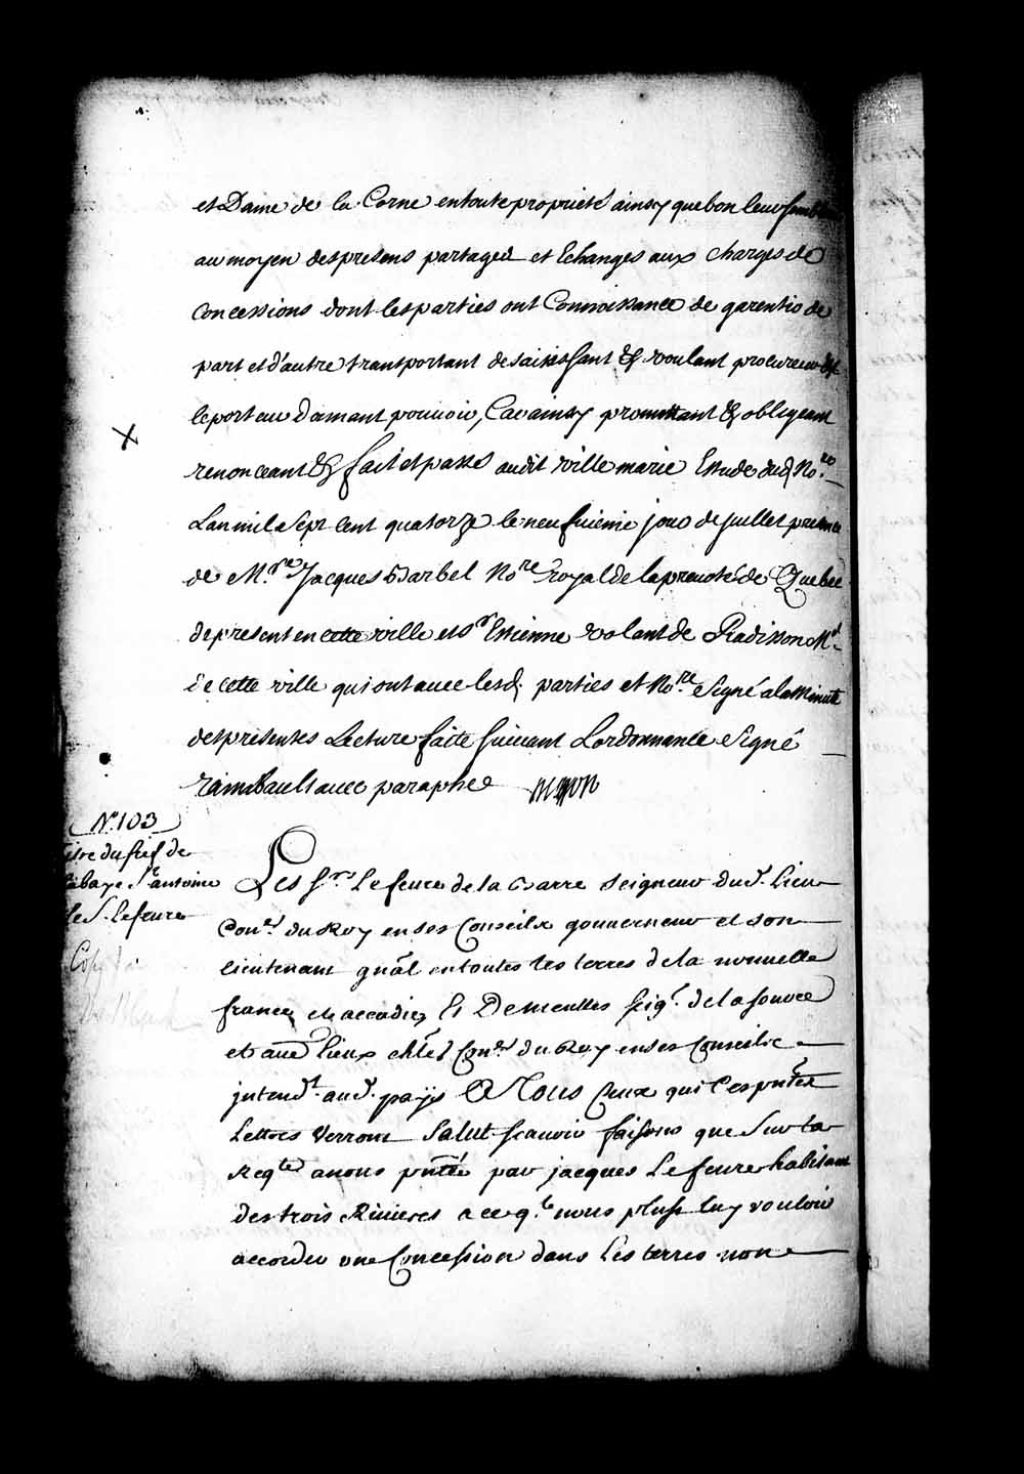 et Dame de la Corne entoute proprieté ainsy que bon leur
au moyen des presens partages et Echanges aux charges de
Concessions dont les parties ont Connoissance de garentis de
part et d'autre transportant desaisissant &c voulant procureur
le porteur donnant pouvoir, Car ainsy promettant & obligeant
renonceant &c fait et passé audit ville marie Estude dud. No.re
Lan mil sept cent quatorze le neufuieme jour de juillet presence
de M.re Jacques Barbel No.re royal de la preuosté de Quebec
de present en cette ville et Sr Estienne volant de Radisson M.d
de cette ville qui ont auec lesd. parties et No.re signé a la Minute
des presentes Lecture faite suiuant Lordonnance signé
raimbault auec paraphe
N.° 103
titre du fief de
labaye St antoine
le S. Lefeure
Copy
Les Sr Lefeure de la Barre Seigneur dud. Lieu
Con.er du Roy en ses Conseils gouuerneur et son
lieutenant gnãl en toutes les terres de la nouuelle
france et accadie, Et Demeulles seig.r de la source
et autẽ lieux chler Con.er du Roy en ses Conseils
jntend.t aud. pays A Tous Ceux qui Ces pntẽs
Lettres Verront Salut scauoir faisons que Sur la
Reqte a nous pntéé par jacques Lefeure habitant
des trois Riuieres a ce q.l nous plust luy vouloir
accorder une Concession dans les terres non